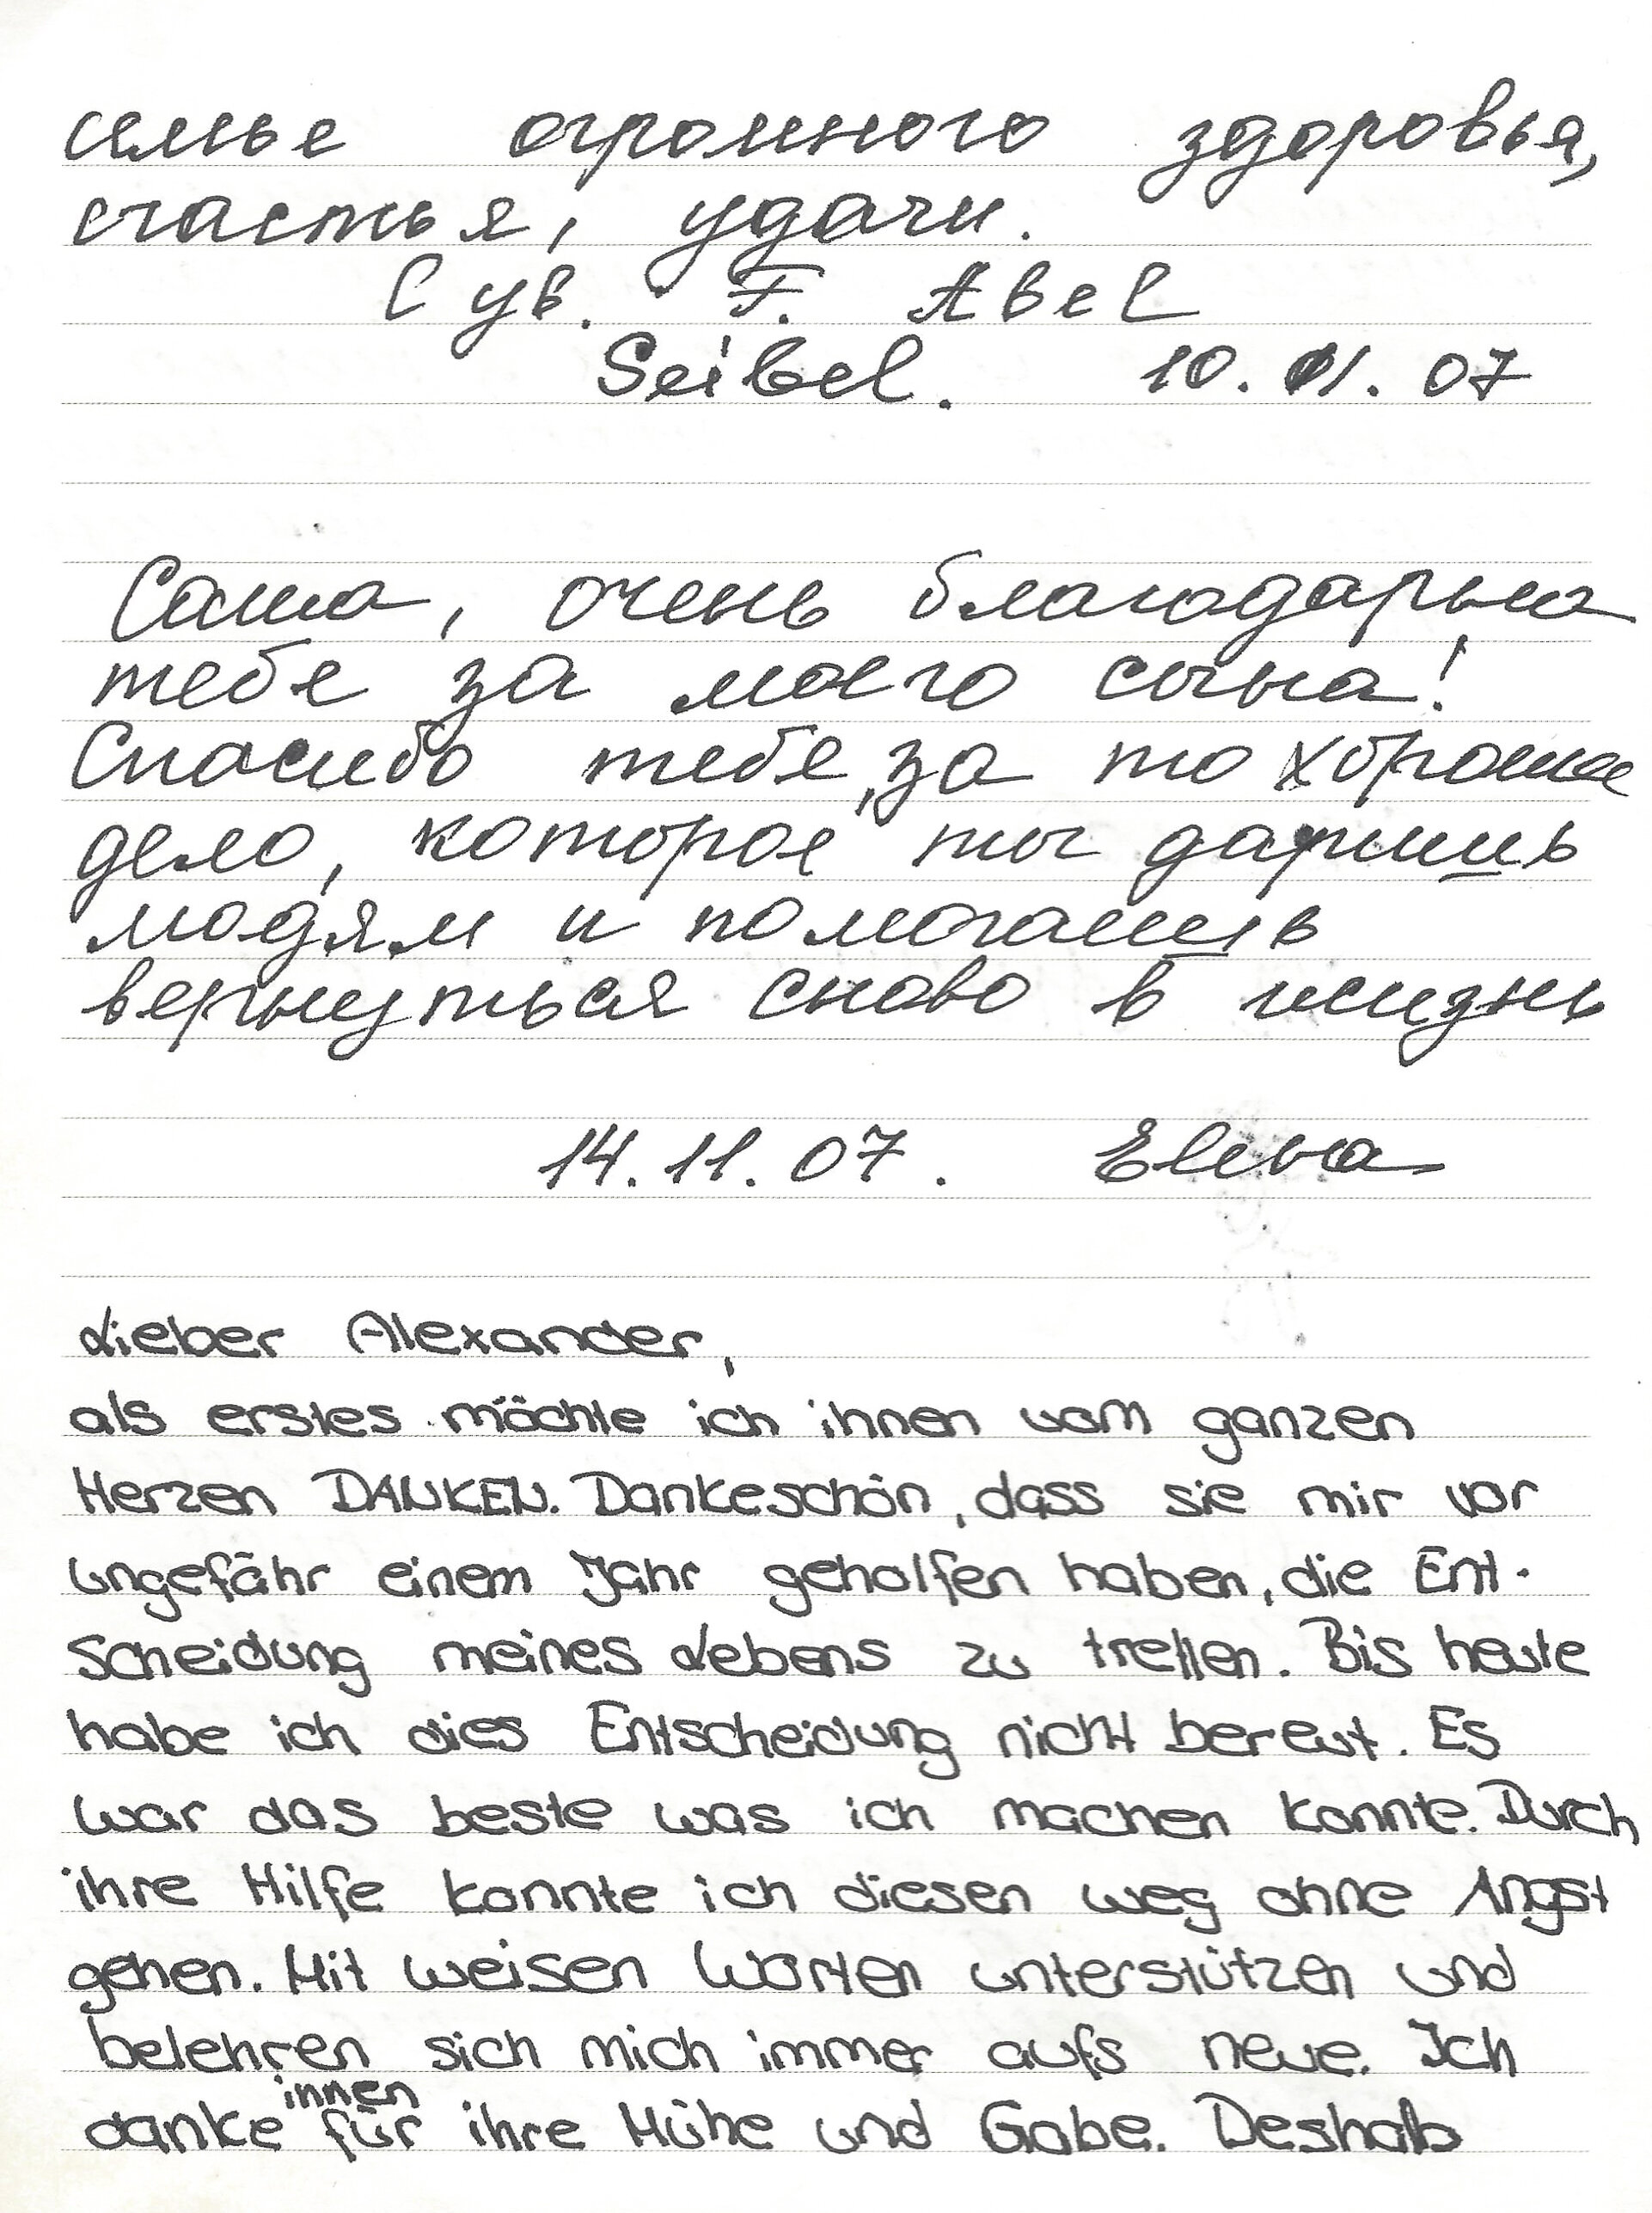 семье огромного здоровья,
счастья, удачи.
С ув. F. Abel
Seibel. 10.11.07
Саша, очень благодарна
тебе за моего сына!
Спасибо тебе, за то хорошее
дело, которое ты даришь
людям и помогаешь
вернуться снова в жизнь
14.11.07. Elena
Lieber Alexander,
als erstes möchte ich ihnen vom ganzen
Herzen DANKEN. Dankeschön, dass sie mir vor
ungefähr einem Jahr geholfen haben, die Ent-
scheidung meines Lebens zu treffen. Bis heute
habe ich dies Entscheidung nicht bereut. Es
war das beste was ich machen konnte. Durch
ihre Hilfe konnte ich diesen weg ohne Angst
gehen. Mit weisen Worten unterstützen und
belehren sich mich immer aufs neue. Ich
danke innen für ihre Mühe und Gabe. Deshalb